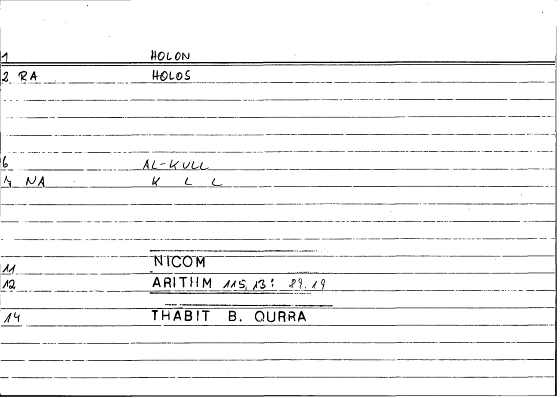 1 HOLON
2 RA HOLOS
6 AL-KULL
7 NA K L L
11 NICOM
12 ARITHM 115,13: 89.19
14 THABIT B. QURRA